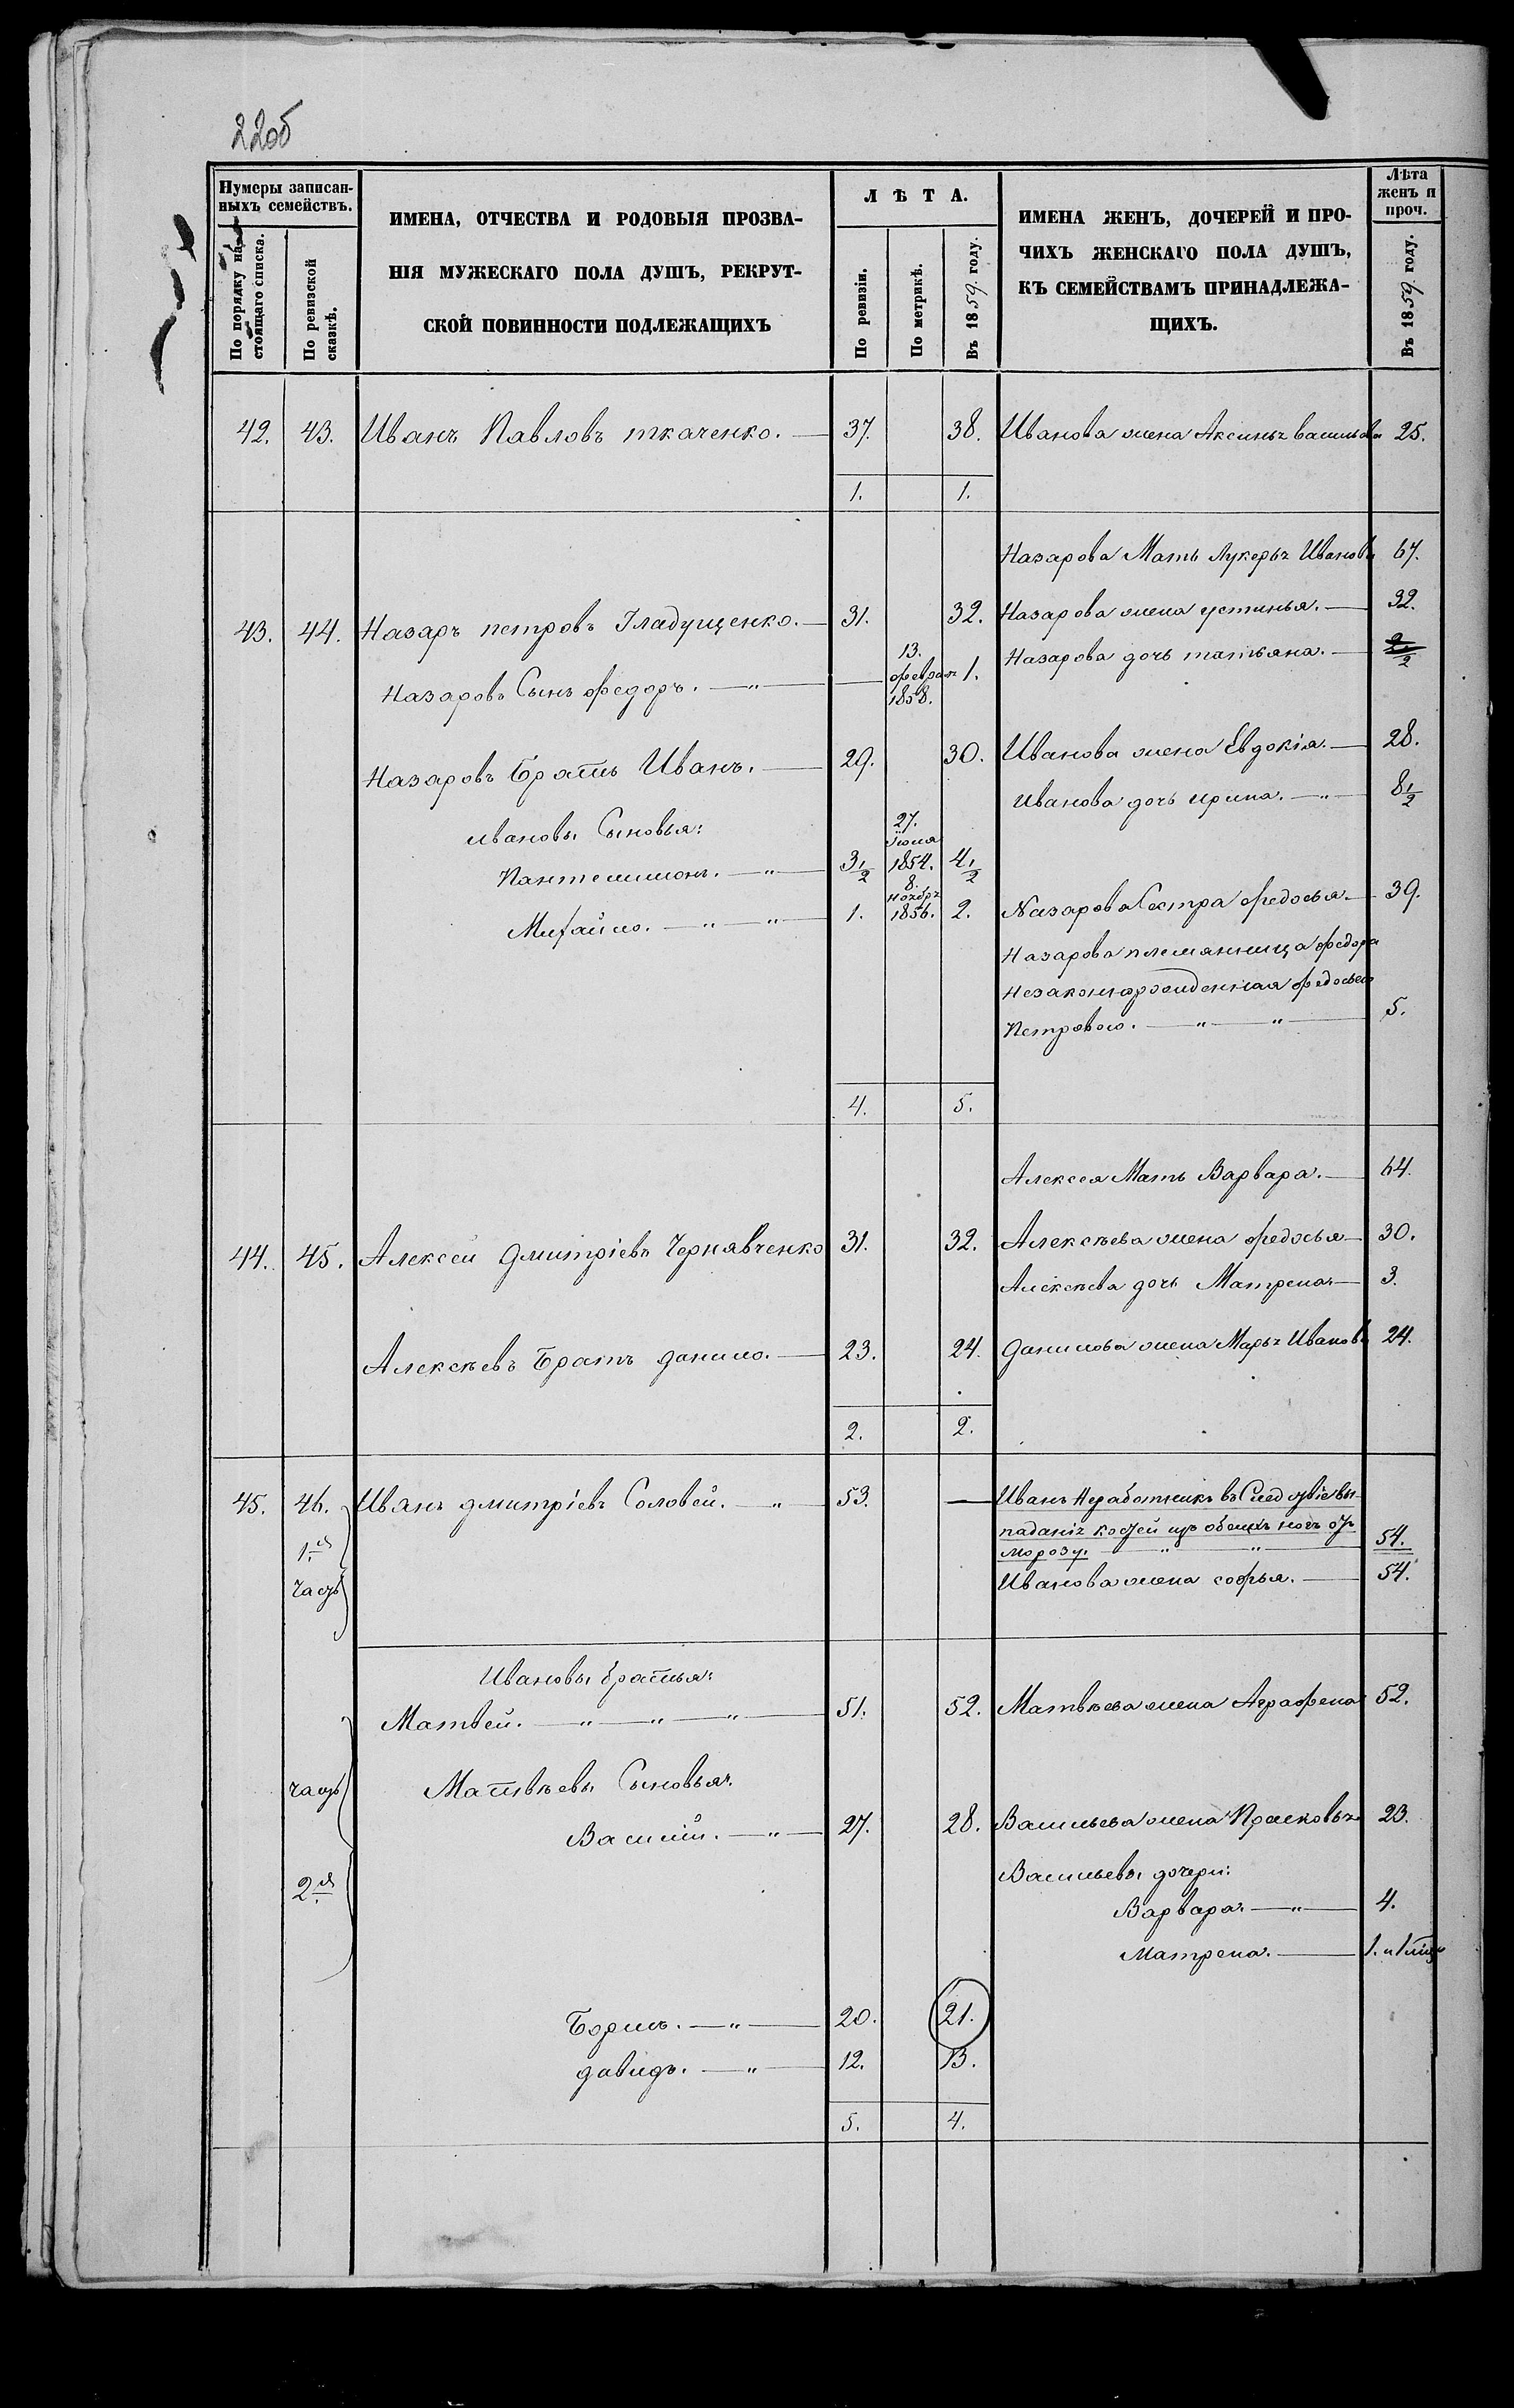 22об
Нумеры записан-
ныхъ семействъ.
По порядку на-
стоящаго списка.
По ревизской
сказкѣ.
ИМЕНА, ОТЧЕСТВА И РОДОВЫЯ ПРОЗВА-
НІЯ МУЖЕСКАГО ПОЛА ДУШЪ, РЕКРУТ-
СКОЙ ПОВИННОСТИ ПОДЛЕЖАЩИХЪ
ЛѢТА.
По ревизіи.
По метрикѣ.
Въ 1859 году.
ИМЕНА ЖЕНЪ, ДОЧЕРЕЙ И ПРО-
ЧИХЪ ЖЕНСКАГО ПОЛА ДУШЪ,
КЪ СЕМЕЙСТВАМЪ ПРИНАДЛЕЖА-
ЩИХЪ.
Лѣта
женъ и
проч.
Въ 1859 году.
42. 43. Иванъ Павловъ ткаченко. — 37. 38. Иванова жена Аксинья васильева 25.
1. 1.
Назарова Мать Лукерья Иванова 67.
43. 44. Назаръ петровъ Гладущенко. — 31. 32. Назарова жена устинья. — 32.
Назарова дочь татьяна. — 2 1/2
Назаровъ Сынъ федоръ. — " — 13. февраля 1858. 1.
Назаровъ Братъ Иванъ. — 29. 30. Иванова жена Евдокія. — 28.
Иванова дочь ирина. — " — 8 1/2
Ивановы Сыновья:
Пантелимонъ. — " — 3 1/2 27. Іюля 1854. 4 1/2
Михайло. — " — " — 1. 8. ноября 1856. 2. Назарова Сестра федосья. — 39.
Назарова племянница федора
Незаконнорожденная федосьею
Петровою. — " — " — 5.
4. 5.
Алексея Мать Варвара. — 64.
44. 45. Алексей Дмитріевъ Чернявченко 31. 32. Алексѣева жена федосья — 30.
Алексѣева дочь Матрена — 3.
Алексѣевъ Братъ данило. — 23. 24. данилова жена Марья Иванова 24.
2. 2.
45. 46. Иванъ дмитріевъ Соловей. — " 53. — Иванъ Неработникъ въ Следствіе вы-
1.я паданія костей изъ обеихъ ногъ отъ
морозу. — " — " 54.
часть Иванова жена софья. — 54.
Ивановы братья:
Матвей. — " — " — " — 51. 52. Матвѣева жена Аграфена 52.
часть Матвѣевы Сыновья:
Василій. — " — 27. 28. Васильева жена Прасковья 23.
2.я Васильевы дочери:
Варвара — " — 4.
Матрена. — 1. и 1 мѣс.
Борисъ. — " — 20. 21.
давидъ. — " — 12. 13.
5. 4.